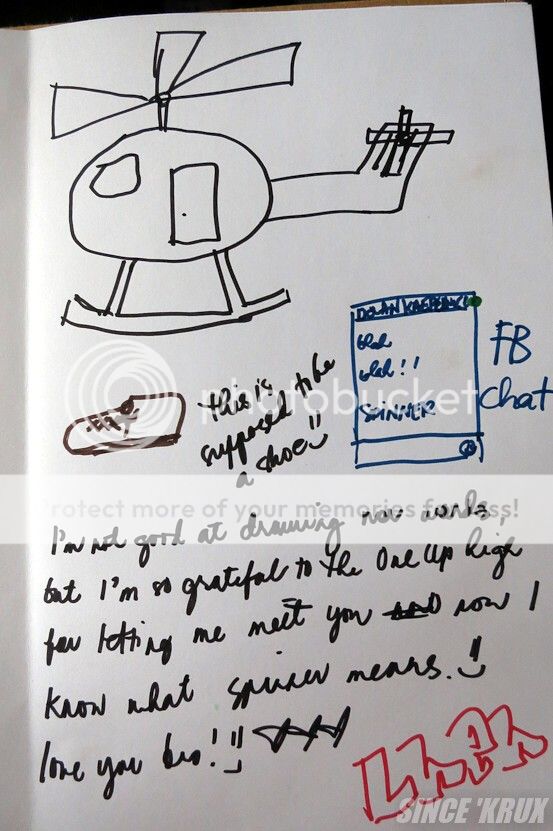 blah
blah!!
SPINNER
FB
chat
this is
supposed to be
a shoe
photobucket
Protect more of your memories for less!
I'm not good at drawing nor words,
but I'm so grateful to the One Up High
for letting me meet you now I
know what spinner means.
love you bro!
SINCE 'KRUX